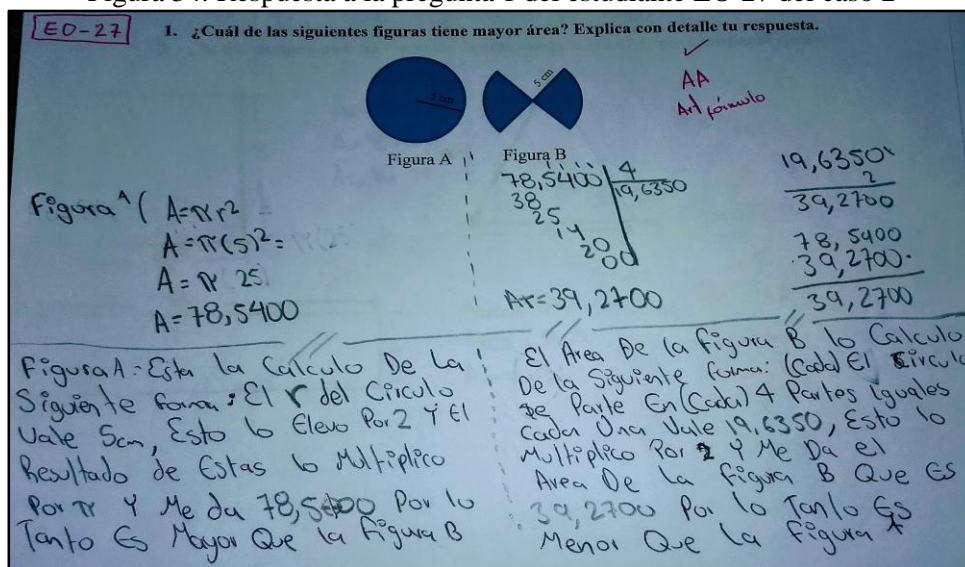 Figura 34. Respuesta a la pregunta 1 del estudiante EO-27 del caso 2
EO-27
1. ¿Cuál de las siguientes figuras tiene mayor área? Explica con detalle tu respuesta.
5 cm
5 cm
AA
Figura A
Figura B
Figura A ( A=πr²
A=π(5)²=
A=π 25
A=78,5400
78,5400 4
38 19,6350
25
14
20
200
Ar=39,2700
19,6350
2
39,2700
78,5400
39,2700
39,2700
Figura A: Esta la Calculo De La
Siguiente forma: El r del Circulo
Vale 5cm, Esto lo Elevo Por 2 Y El
Resultado de Estas lo Multiplico
Por π Y Me da 78,5400 Por lo
Tanto Es Mayor Que la Figura B
El Area De la Figura B lo Calculo
De la Siguiente forma: (Cada) El Circulo
se Parte En (Cada) 4 Partes Iguales
Cada Una Vale 19,6350, Esto lo
Multiplico Por 2 Y Me Da el
Area De la Figura B Que Es
39,2700 Por lo Tanto Es
Menor Que la Figura A